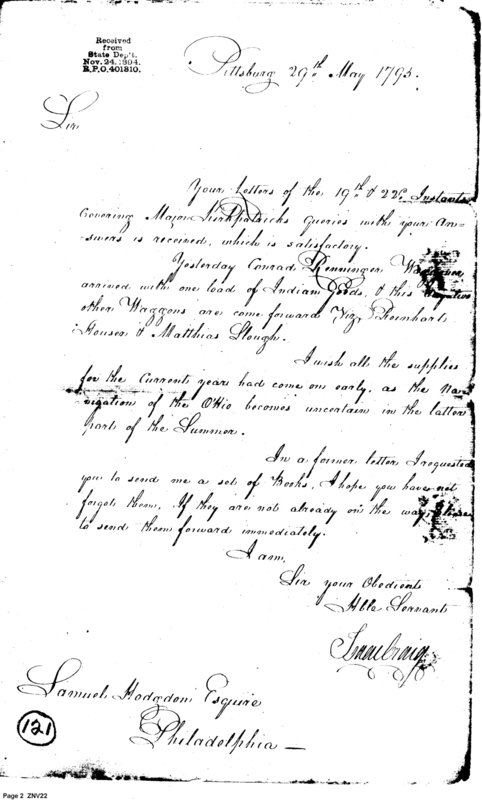 Received
from
State Dep't.
Nov. 24. 1894.
R.P.O. 401810.
Pittsburg 29th May 1795.
Sir
Your Letters of the 19th & 22d Instant
Covering Major Kirkpatricks Queries with your An=
=swers is received, which is satisfactory.
Yesterday Conrad Renninger
arrived with one load of Indian Goods, & this
other Waggons are come forward Viz Rheinhart
Houser & Matthias Slough.
I wish all the supplies
for the Current years had come on early, as the Nav
igation of the Ohio becomes uncertain in the latter
part of the Summer.
In a former letter I requested
you to send me a set of Books, I hope you have not
forgot them, If they are not already on the way,
to send them forward immediately.
I am,
Sir your Obedient
Hble Servant
Isaac Craig
Samuel Hodgdon Esquire
121
Philadelphia —
Page 2 ZNV22